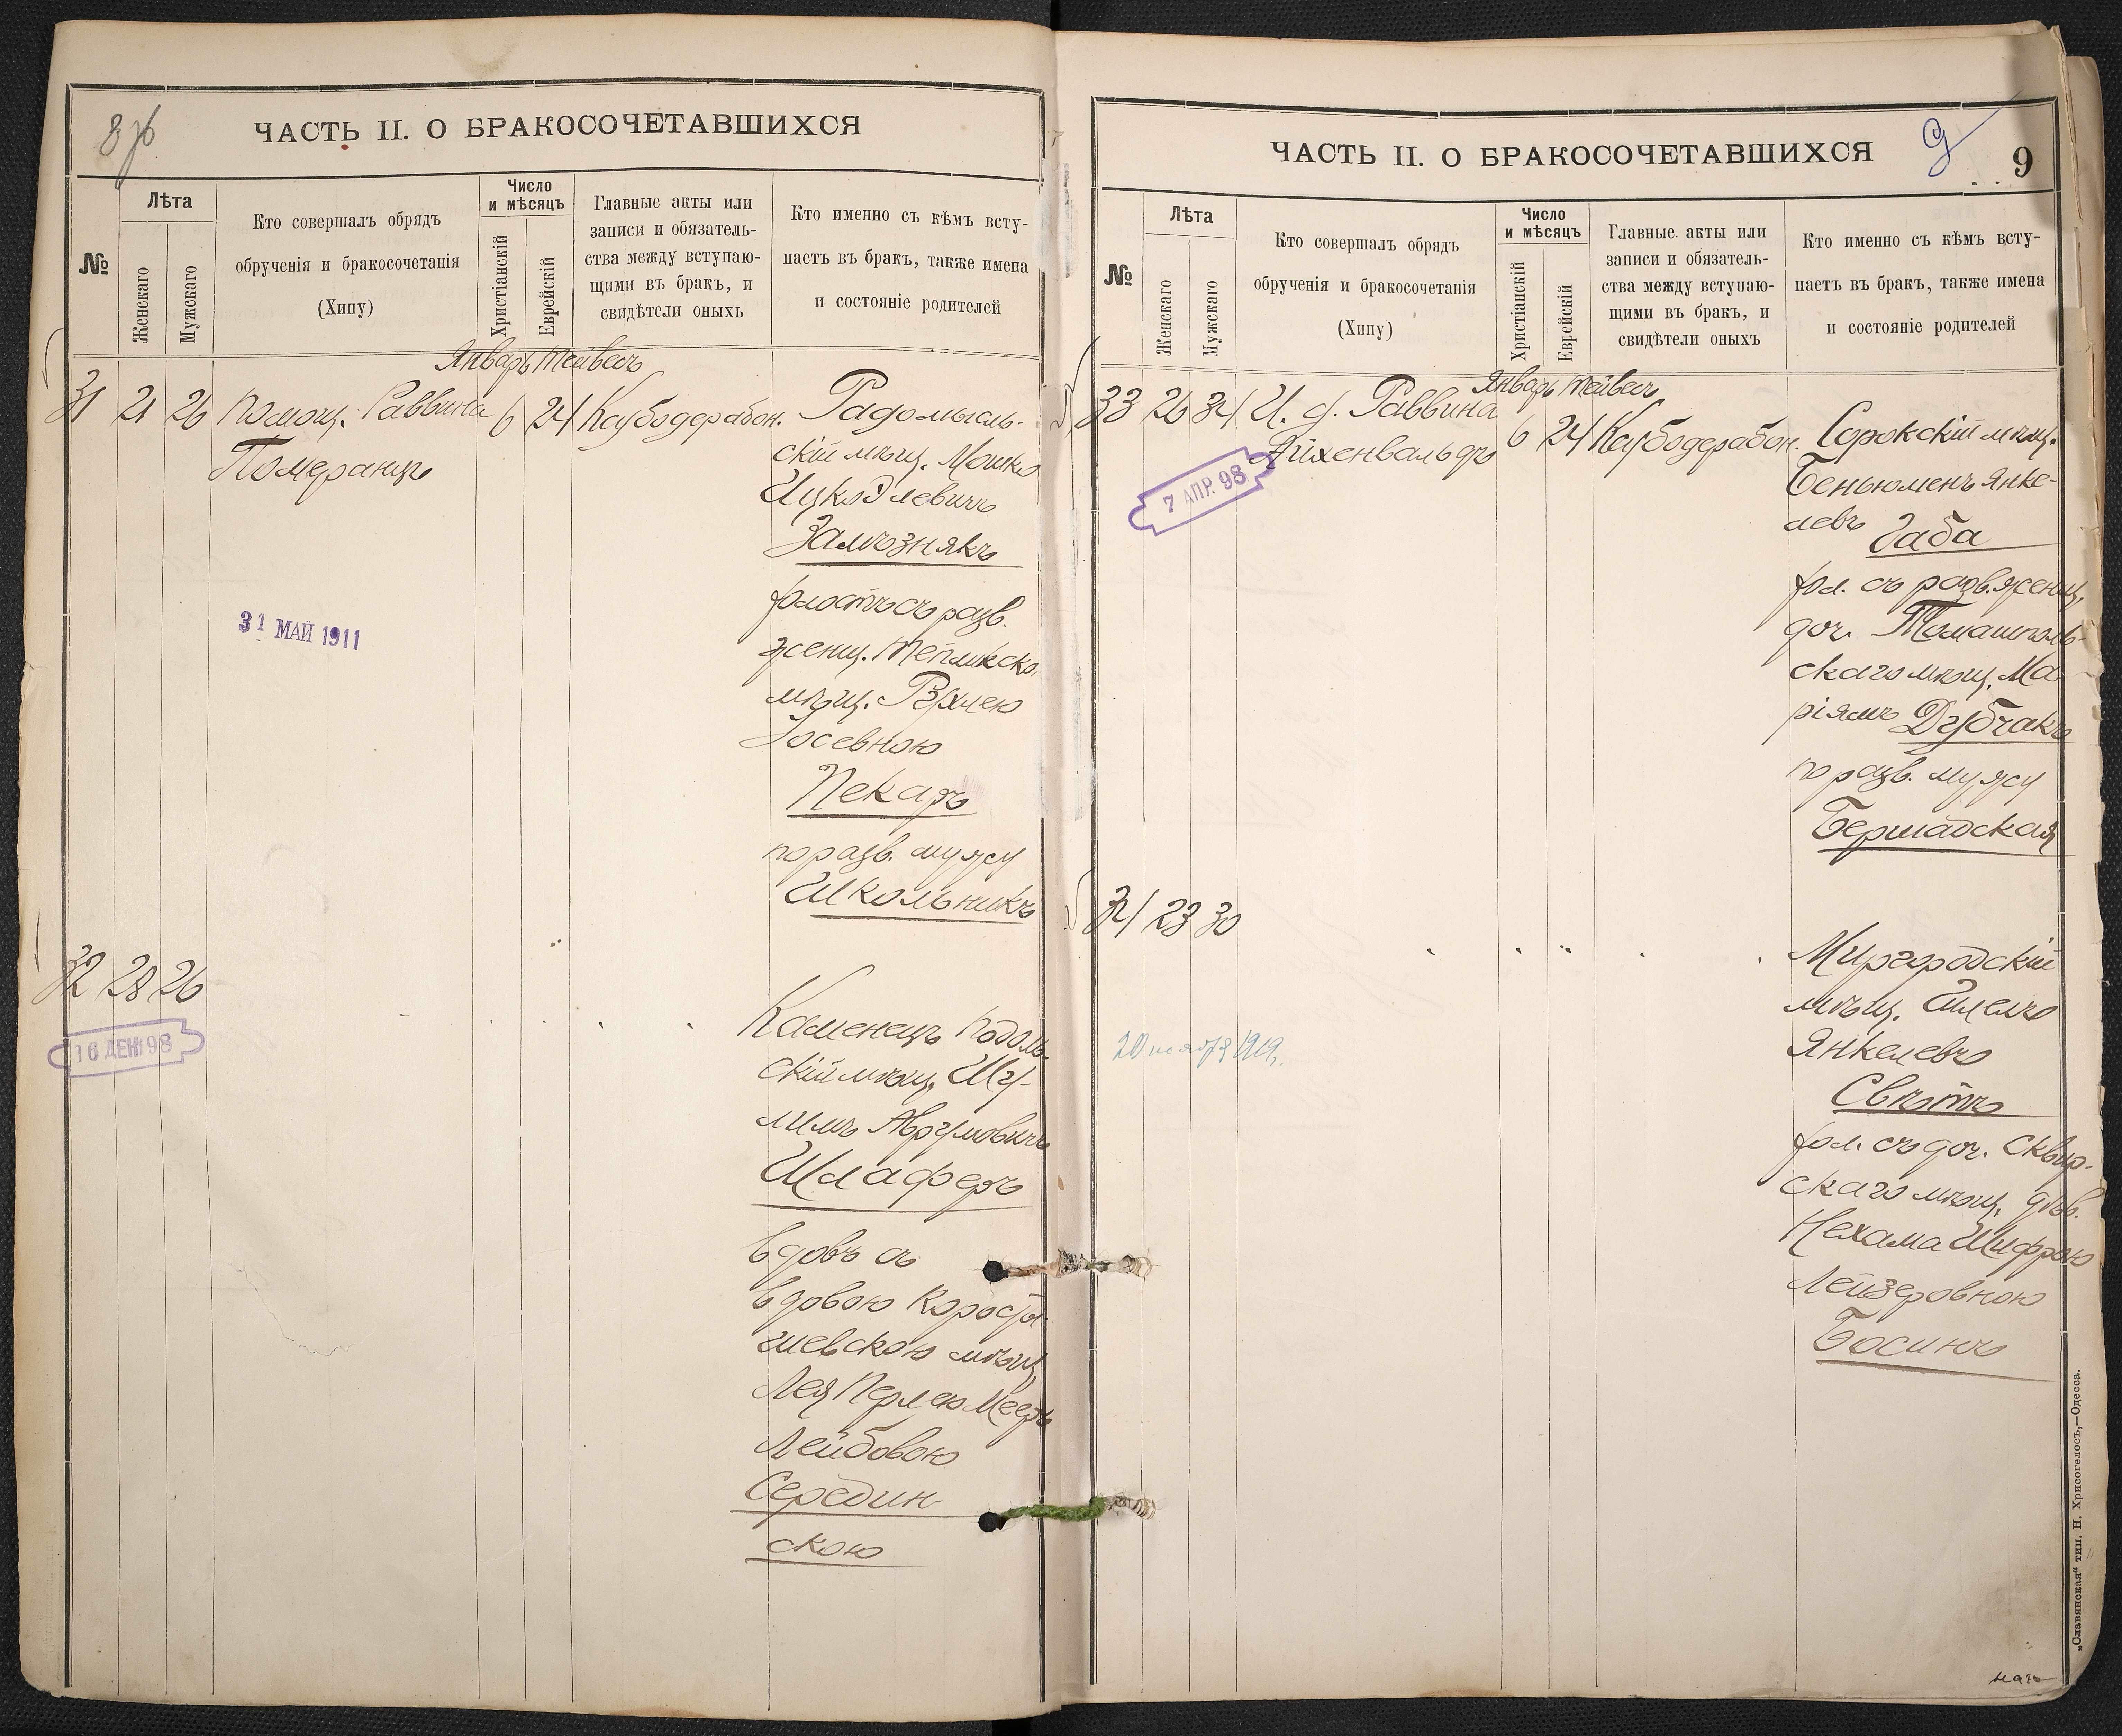 ЧАСТЬ II. О БРАКОСОЧЕТАВШИХСЯ
№
Лѣта
Женскаго
Мужскаго
Кто совершалъ обрядъ
обрученія и бракосочетанія
(Хипу)
Число
и мѣсяцъ
Христіанскій
Еврейскій
Главные акты или
записи и обязатель-
ства между вступаю-
щими въ бракъ, и
свидѣтели оныхъ
Кто именно съ кѣмъ всту-
паетъ въ бракъ, также имена
и состояніе родителей
Январь Тейвесъ
31 21 26 Помощ. Раввина 6 24
Померанцъ
31 МАЙ 1911
Радомысль-
скій мѣщ. Мошко
Ицко
Замѣзнякъ
холостъ съ разв.
женщ. Тепликско.
мѣщ. Рухлею
Іосевною
Пекаръ
по разв. мужу
Школьникъ
32 28 26
16 ДЕК 98
Каменецъ Подоль-
скій мѣщ. Шу-
лимъ Аврумовичъ
Шлаферъ
вдовъ съ
вдовою Коросты-
шевскою мѣщ.
Лея Перлею Мееръ
Лейбовою
Середин-
скою
ЧАСТЬ II. О БРАКОСОЧЕТАВШИХСЯ
9
9
№
Лѣта
Женскаго
Мужскаго
Кто совершалъ обрядъ
обрученія и бракосочетанія
(Хипу)
Число
и мѣсяцъ
Христіанскій
Еврейскій
Главные акты или
записи и обязатель-
ства между вступаю-
щими въ бракъ, и
свидѣтели оныхъ
Кто именно съ кѣмъ всту-
паетъ въ бракъ, также имена
и состояніе родителей
Январь Тейвесъ
33 26 34 И. д. Раввина 6 24
Айхенвальдъ
7 АПР. 98
Сорокскій мѣщ.
Беньюменъ Янке-
левъ Заба
хол. съ разв. женщ.
доч. Томашполь-
скаго мѣщ. Ма-
ріямъ Дубчакъ
по разв. мужу
Бершадская
34 23 30
20 ноября 1919.
Миргородскій
мѣщ. Шлема
Янкелевъ
Свѣтъ
хол. съ доч. Сквир-
скаго мѣщ. дѣв.
Нехама Шифрою
Лейзеровною
Босинъ
„Славянская“ тип. Н. Хрисогелосъ,—Одесса.